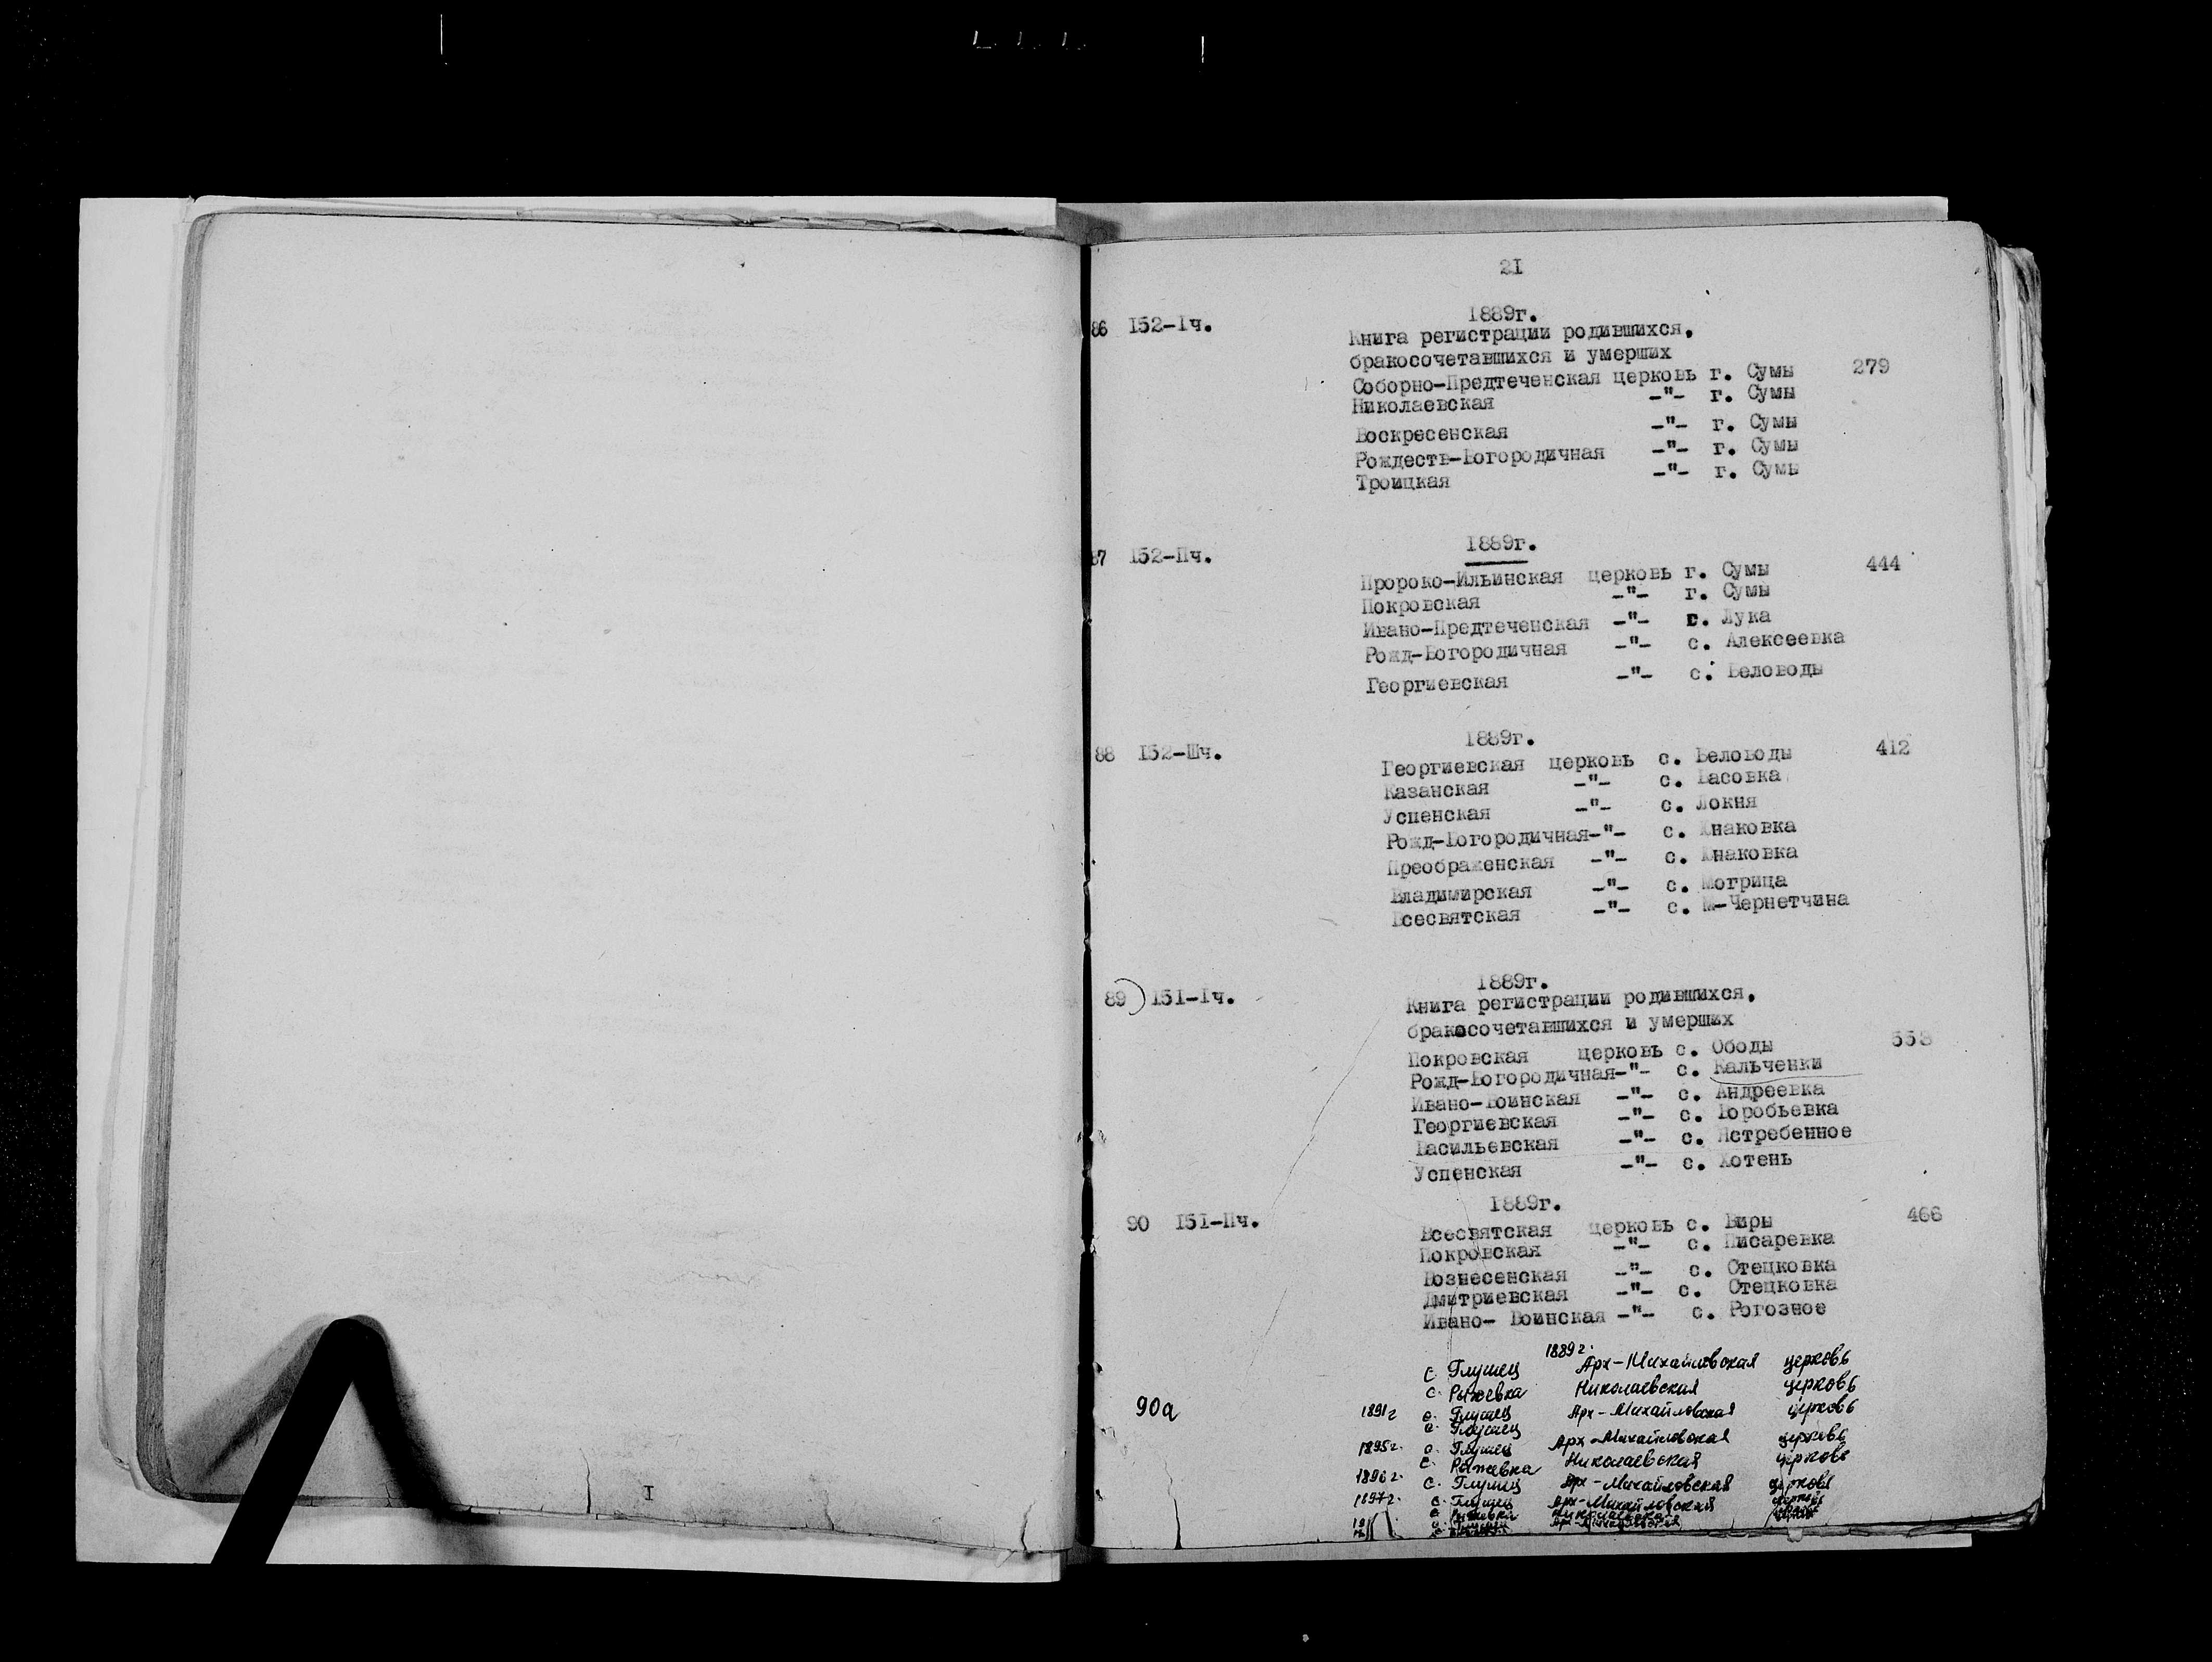 21
1889г.
86 152-Iч. Книга регистрации родившихся,
бракосочетавшихся и умерших
Соборно-Предтеченская церковь г. Сумы 279
Николаевская -"- г. Сумы
Воскресенская -"- г. Сумы
Рождеств-Богородичная -"- г. Сумы
Троицкая -"- г. Сумы
1889г.
87 152-Пч.
Пророко-Ильинская церковь г. Сумы 444
Покровская -"- г. Сумы
Ивано-Предтеченская -"- с. Лука
Рожд-Богородичная -"- с. Алексеевка
Георгиевская -"- с. Беловоды
1889г.
88 152-Шч.
Георгиевская церковь с. Беловоды 412
Казанская -"- с. Басовка
Успенская -"- с. Локня
Рожд-Богородичная-"- с. Юнаковка
Преображенская -"- с. Юнаковка
Владимирская -"- с. Могрица
Всесвятская -"- с. М-Чернетчина
1889г.
89) 151-Iч. Книга регистрации родившихся,
бракосочетавшихся и умерших
Покровская церковь с. Ободы 553
Рожд-Богородичная-"- с. Кальченки
Ивано-Воинская -"- с. Андреевка
Георгиевская -"- с. Воробьевка
Васильевская -"- с. Ястребенное
Успенская -"- с. Хотень
1889г.
90 151-Пч.
Всесвятская церковь с. Виры 466
Покровская -"- с. Писаревка
Вознесенская -"- с. Стецковка
Дмитриевская -"- с. Стецковка
Ивано- Воинская -"- с. Рогозное
1889г.
с. Глушец Арх-Михайловская церковь
с. Рыжевка Николаевская церковь
90а 1891г с. Глушец Арх-Михайловская церковь
с. Глушец Арх-Михайловская церковь
1895г. с. Глушец
с. Рыжевка Николаевская церковь
1896г. с. Глушец Арх-Михайловская церковь
1897г. с. Глушец Арх-Михайловская церковь
с. Рыжевка Николаевская церковь
I